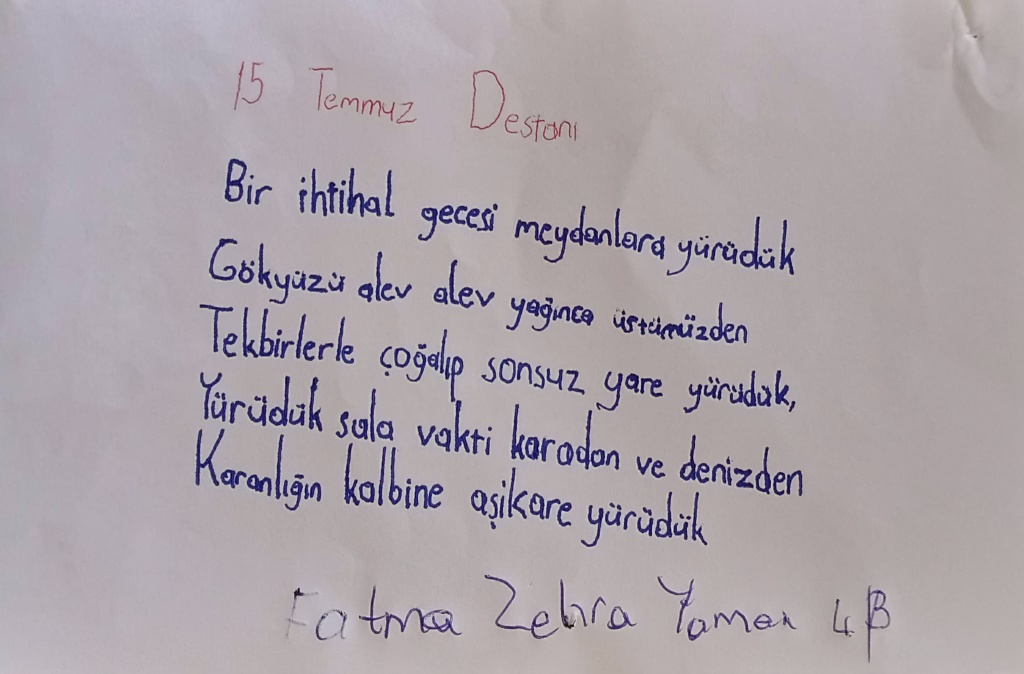 15 Temmuz Destanı
Bir ihtihal gecesi meydanlara yürüdük
Gökyüzü alev alev yağınca üstümüzden
Tekbirlerle çoğalıp sonsuz yare yürüdük,
Yürüdük sala vakti karadan ve denizden
Karanlığın kalbine aşikare yürüdük
Fatma Zehra Yaman 4B